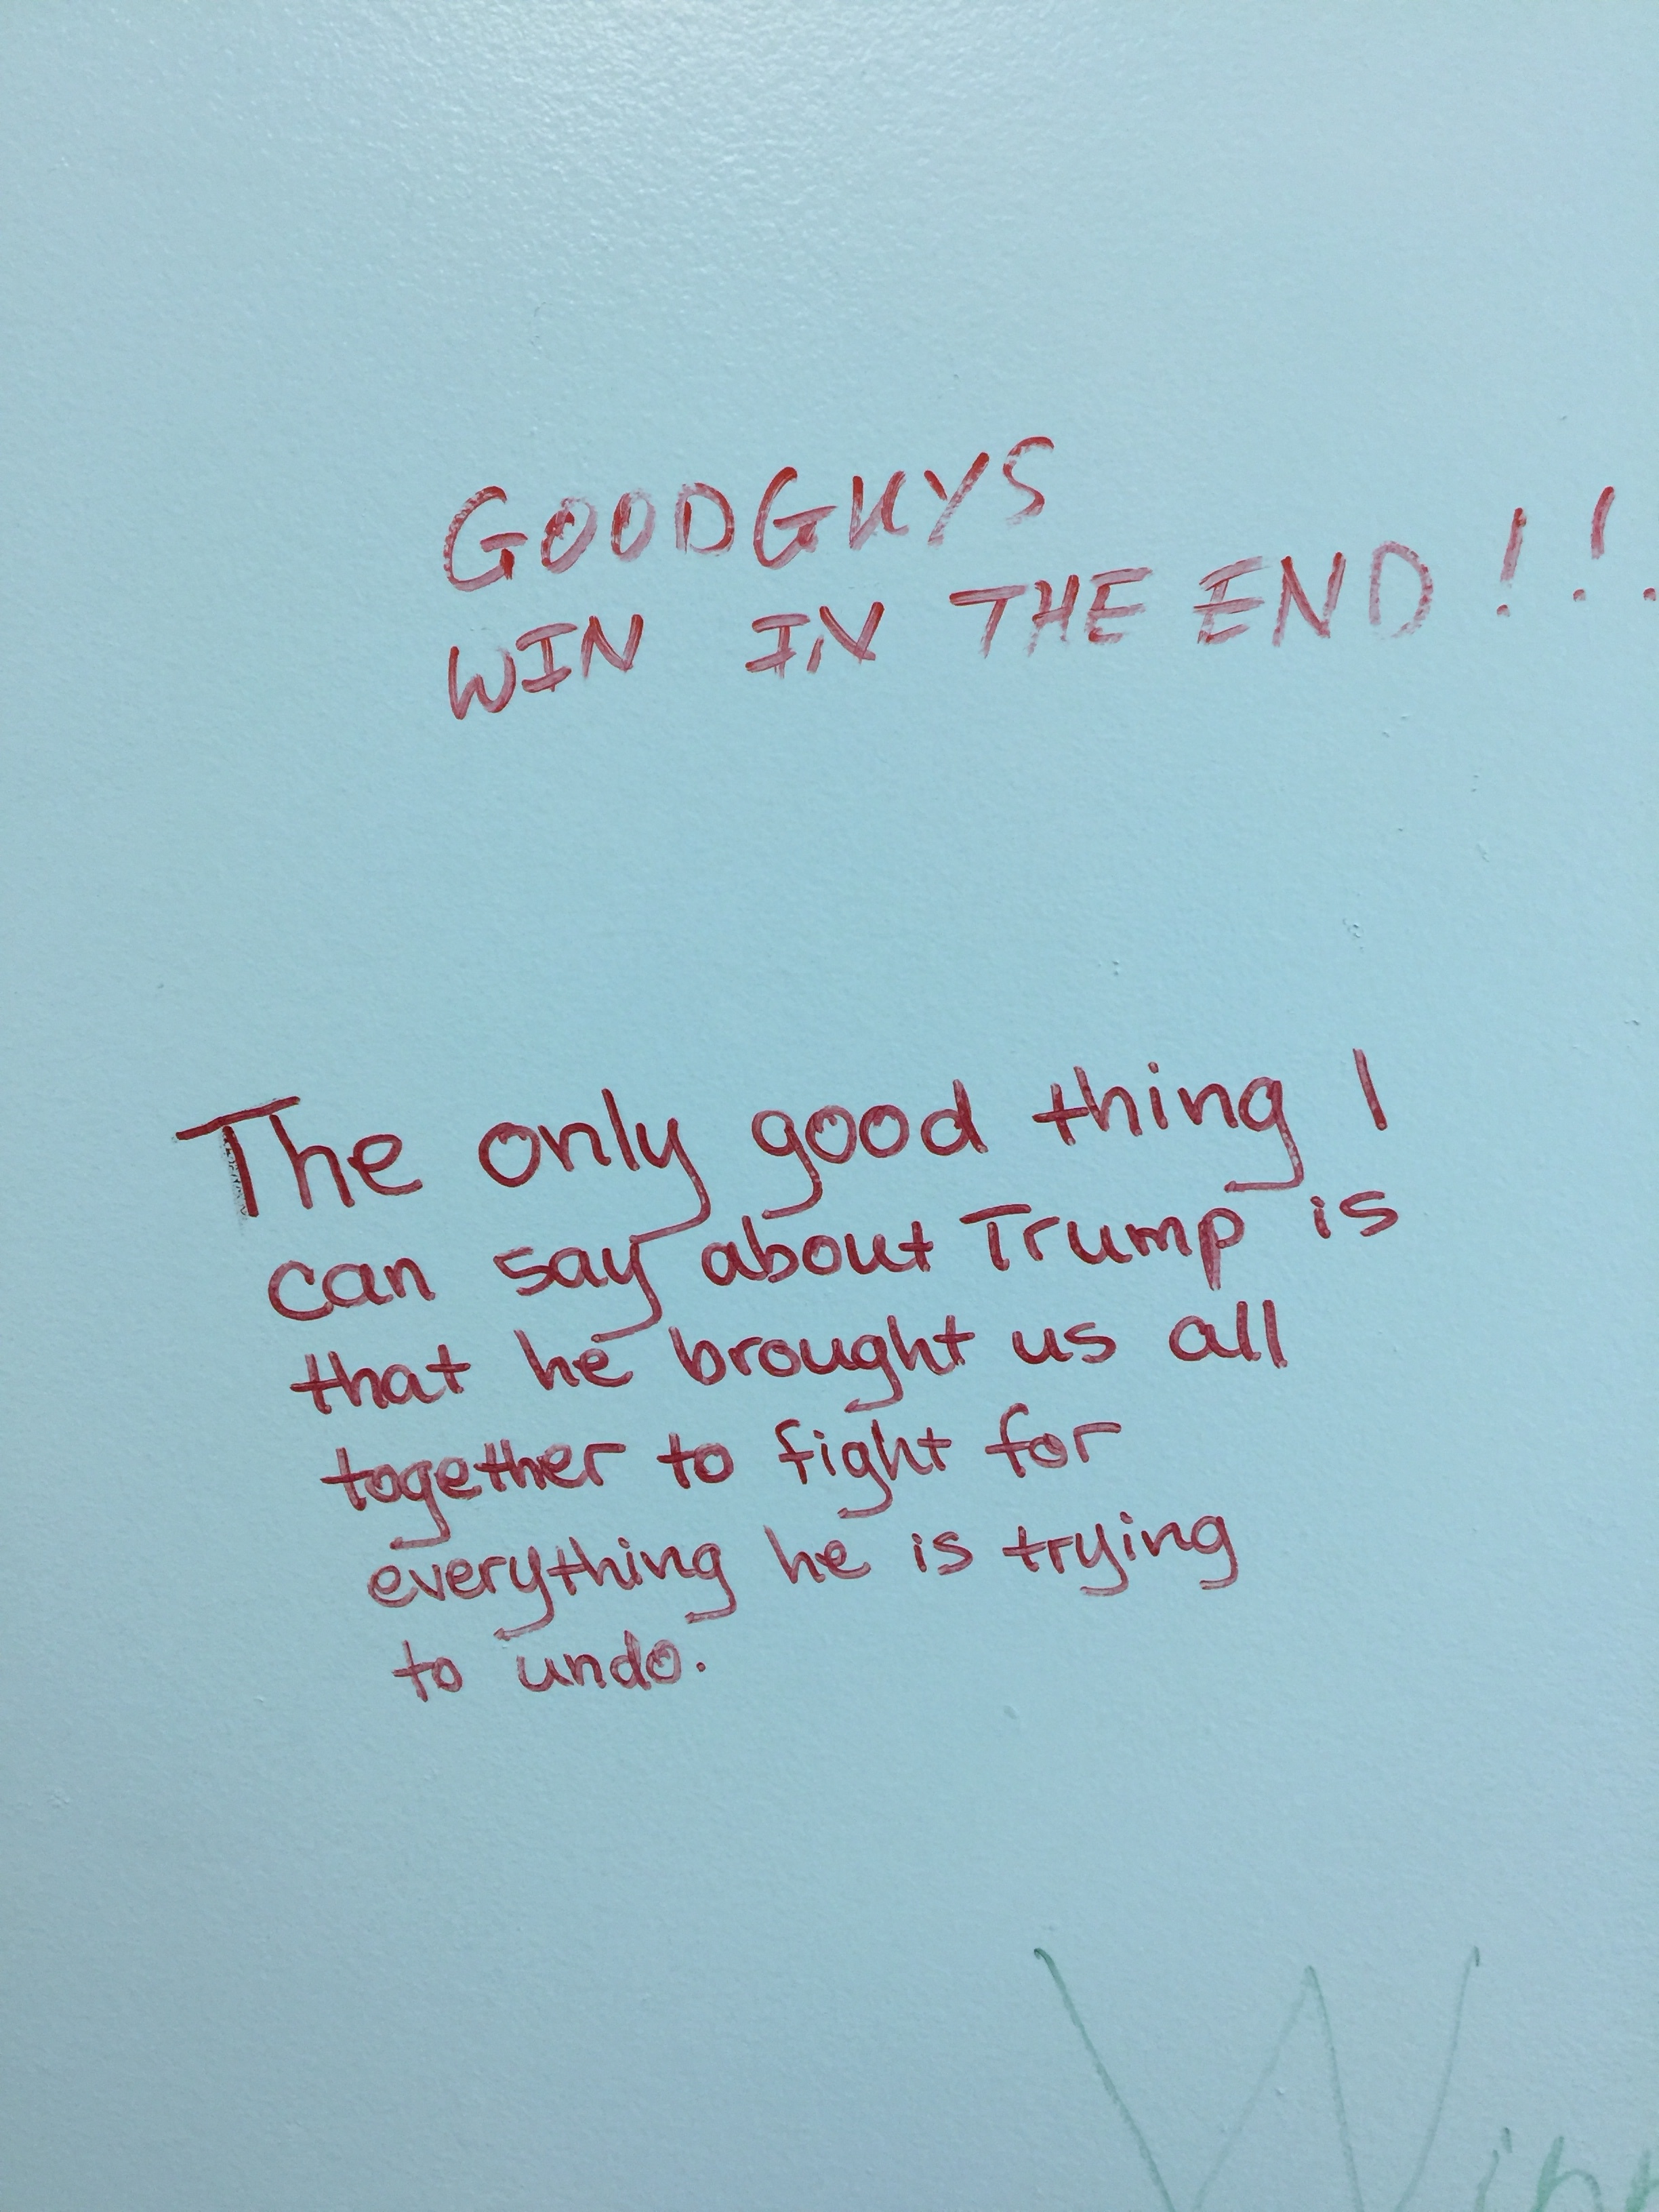 GOODGUYS
WIN IN THE END!!.
The only good thing I
can say about Trump is
that he brought us all
together to fight for
everything he is trying
to undo.